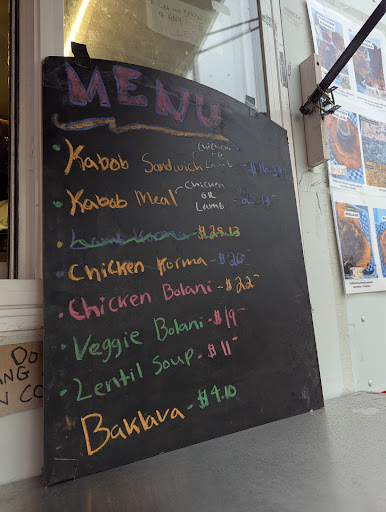 MENU
Kabob Sandwich chicken OR Lamb
Kabob Meal chicken OR Lamb
Lamb Korma - $25.13
Chicken Korma - $20
Chicken Bolani - $22
Veggie Bolani - $19
Lentil Soup - $11
Baklava - $4.10
DO